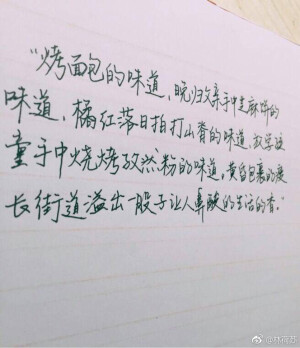 “烤面包的味道，晚归父亲手中芝麻饼的
味道，橘红落日拍打山脊的味道，放学孩
童手中烧烤孜然粉的味道，黄昏包裹的漫
长街道溢出一股子让人鼻酸的生活的香。”
@林荷苏